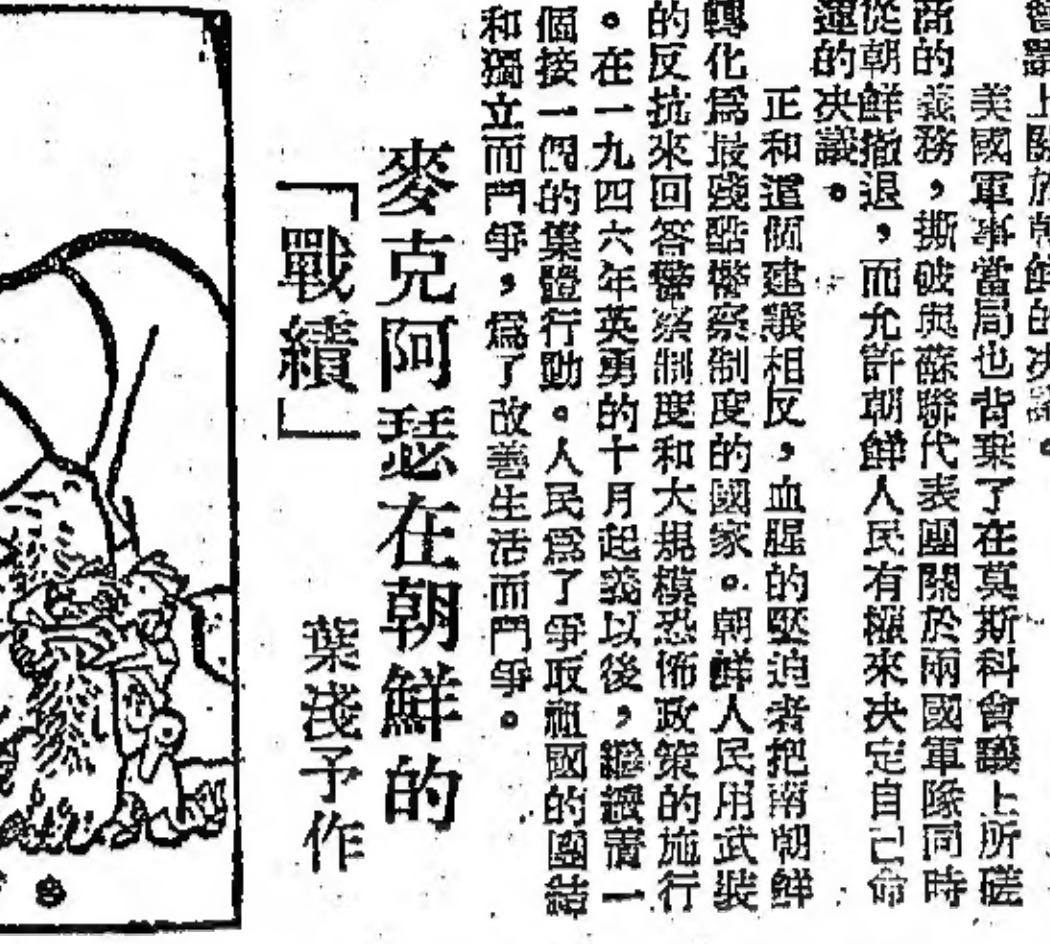 議上關於朝鮮的决議。
美國軍事當局也背棄了在莫斯科會議上所磋
商的義務，撕破與蘇聯代表團關於兩國軍隊同時
從朝鮮撤退，而允許朝鮮人民有權來决定自己命
運的决議。
正和這個建議相反，血腥的壓迫者把南朝鮮
轉化爲最殘酷警察制度的國家。朝鮮人民用武裝
的反抗來回答警察制度和大規模恐怖政策的施行
。在一九四六年英勇的十月起義以後，繼續着一
個接一個的集體行動。人民爲了爭取祖國的團結
和獨立而鬥爭，爲了改善生活而鬥爭。
麥克阿瑟在朝鮮的
「戰績」 葉淺予作